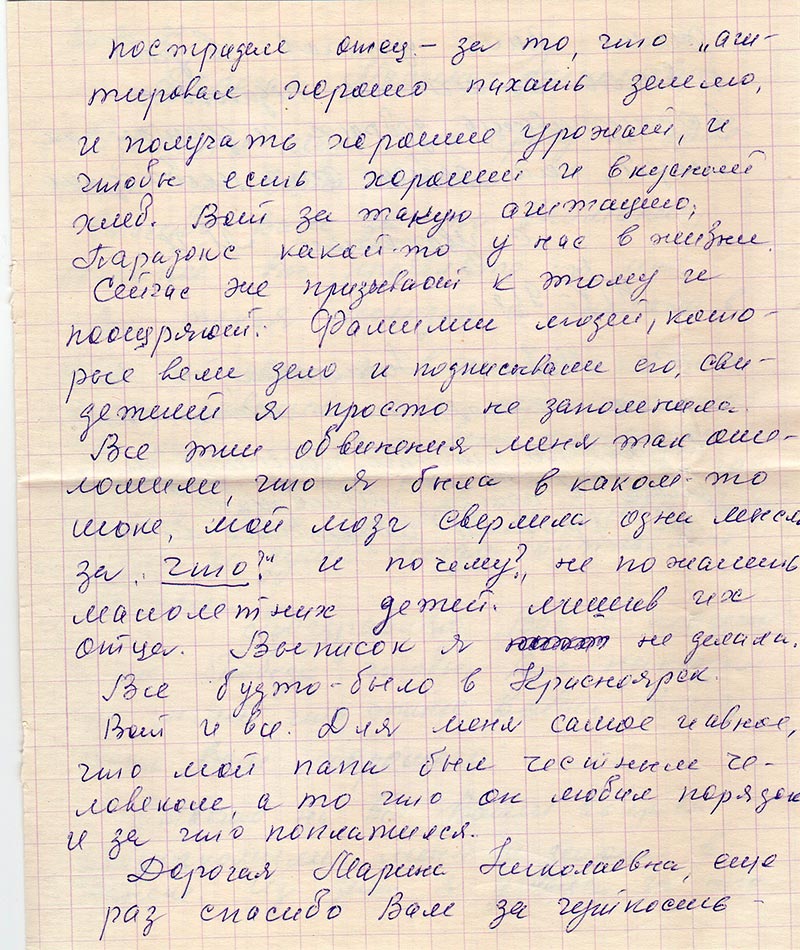 пострадал отец – за то, что „аги-
тировал хорошо пахать землю,
и получать хорошие урожаи, и
чтобы есть хороший и вкусный
хлеб. Вот за такую агитацию,
Парадокс какой-то у нас в жизни.
Сейчас же призывают к этому и
поощряют. Фамилии людей, кото-
рые вели дело и подписывали его, сви-
детелей я просто не запомнила.
Все эти обвинения меня так ошо-
ломили, что я была в каком-то
шоке, мой мозг сверлила одна мысль
за „что?“ и почему?, не пожалеть
малолетних детей. лишив их
отца. Выписок я не делала.
Все будто-было в Красноярск.
Вот и все. Для меня самое главное,
что мой папа был честным че-
ловеком, а то что он любил порядок
и за что поплатился.
Дорогая Марина Николаевна, еще
раз спасибо Вам за чуткость –